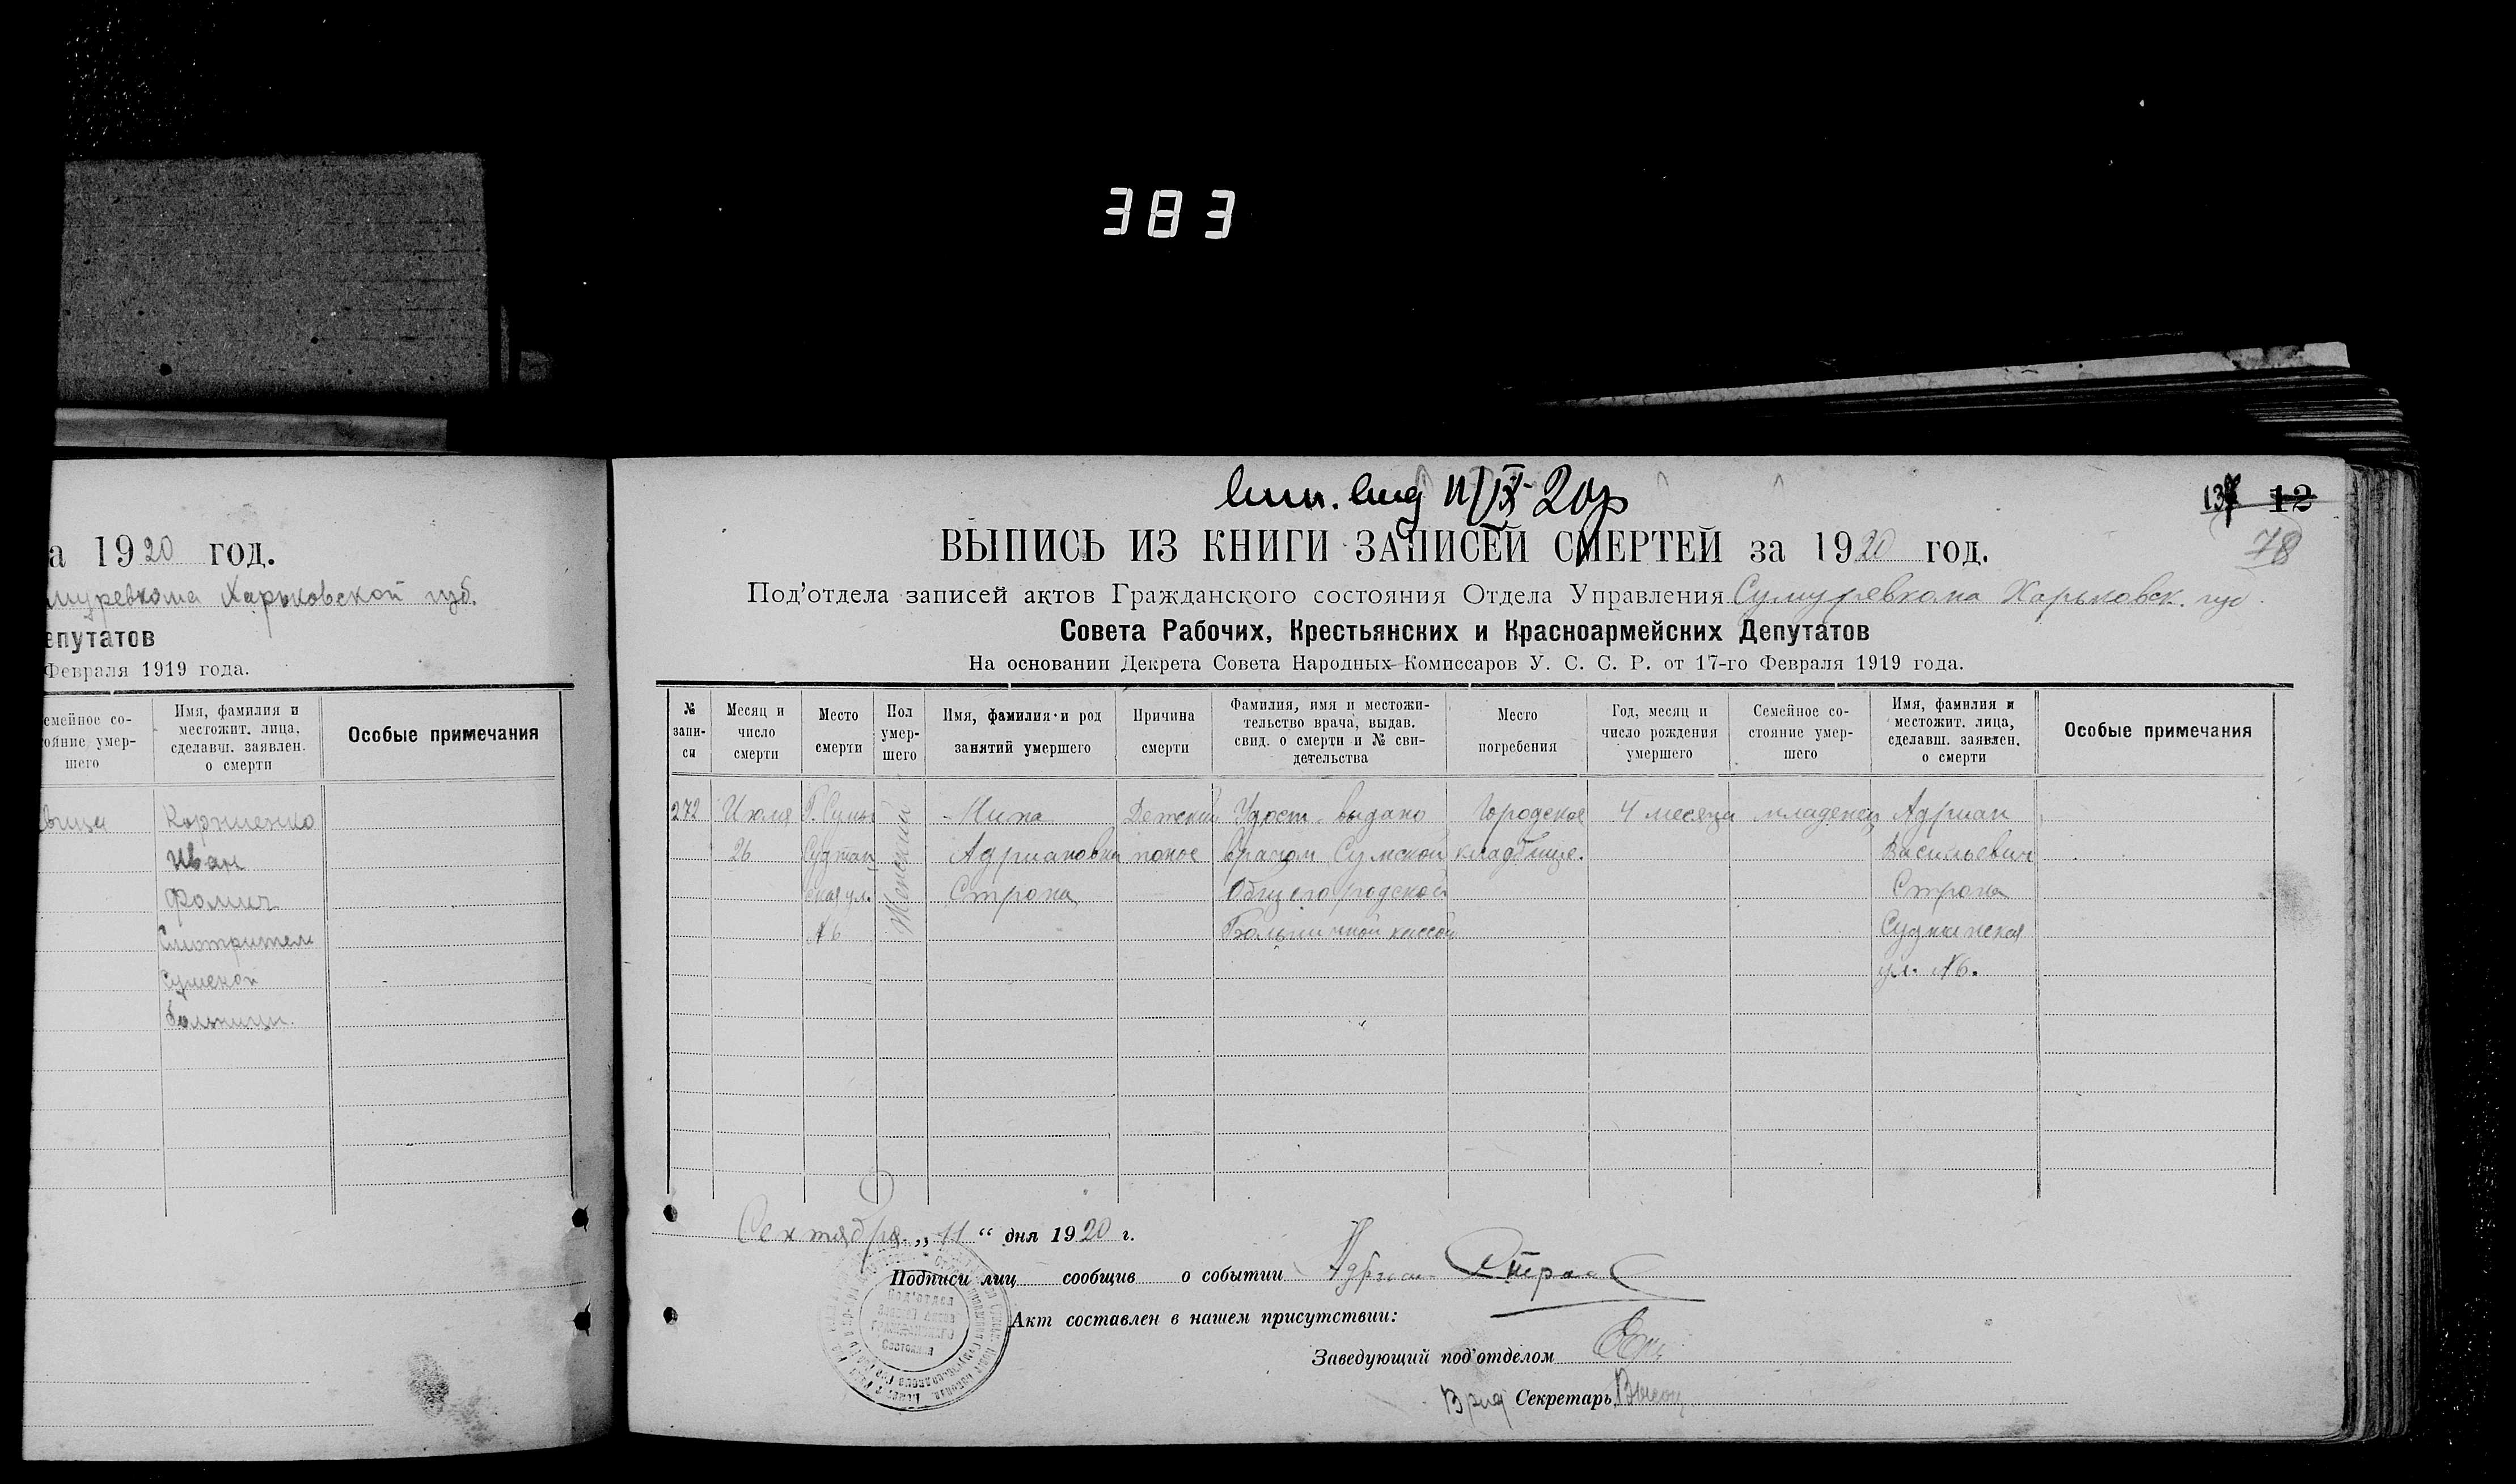 383
а 1920 год.
муревкома Харьковской губ.
епутатов
Февраля 1919 года.
емейное со-
ояние умер-
шего
Имя, фамилия и
местожит. лица,
сделавш. заявлен.
о смерти
Особые примечания
Корниенко
Иван
Фомич
Смотритель
Сумской
больницы.
11/IX-20г
137 12
78
ВЫПИСЬ ИЗ КНИГИ ЗАПИСЕЙ СМЕРТЕЙ за 1920 год.
Под'отдела записей актов Гражданского состояния Отдела Управления Сумуревкома Харьковск. губ.
Совета Рабочих, Крестьянских и Красноармейских Депутатов
На основании Декрета Совета Народных Комиссаров У. С. С. Р. от 17-го Февраля 1919 года.
№
запи-
си
Месяц и
число
смерти
Место
смерти
Пол
умер-
шего
Имя, фамилия и род
занятий умершего
Причина
смерти
Фамилия, имя и местожи-
тельство врача, выдав.
свид. о смерти и № сви-
детельства
Место
погребения
Год, месяц и
число рождения
умершего
Семейное со-
стояние умер-
шего
Имя, фамилия и
местожит. лица,
сделавш. заявлен.
о смерти
Особые примечания
272
Июля
26
Г. Сумы
Суджан
ская ул.
№6
Женский
Нина
Адриановна
Строна
Детский
понос
Удост. выдано
врачом Сумской
Общегородской
Больничной кассой
Городское
кладбище.
4 месяца
младенец
Адриан
Васильевич
Строна
Суджанская
ул. №6.
Сентября „11“ дня 1920 г.
Подписи лиц сообщив о событии Адриан
Под'отдел
Записи Актов
Гражданского
Состояния
Акт составлен в нашем присутствии:
Заведующий под'отделом
Врид Секретарь